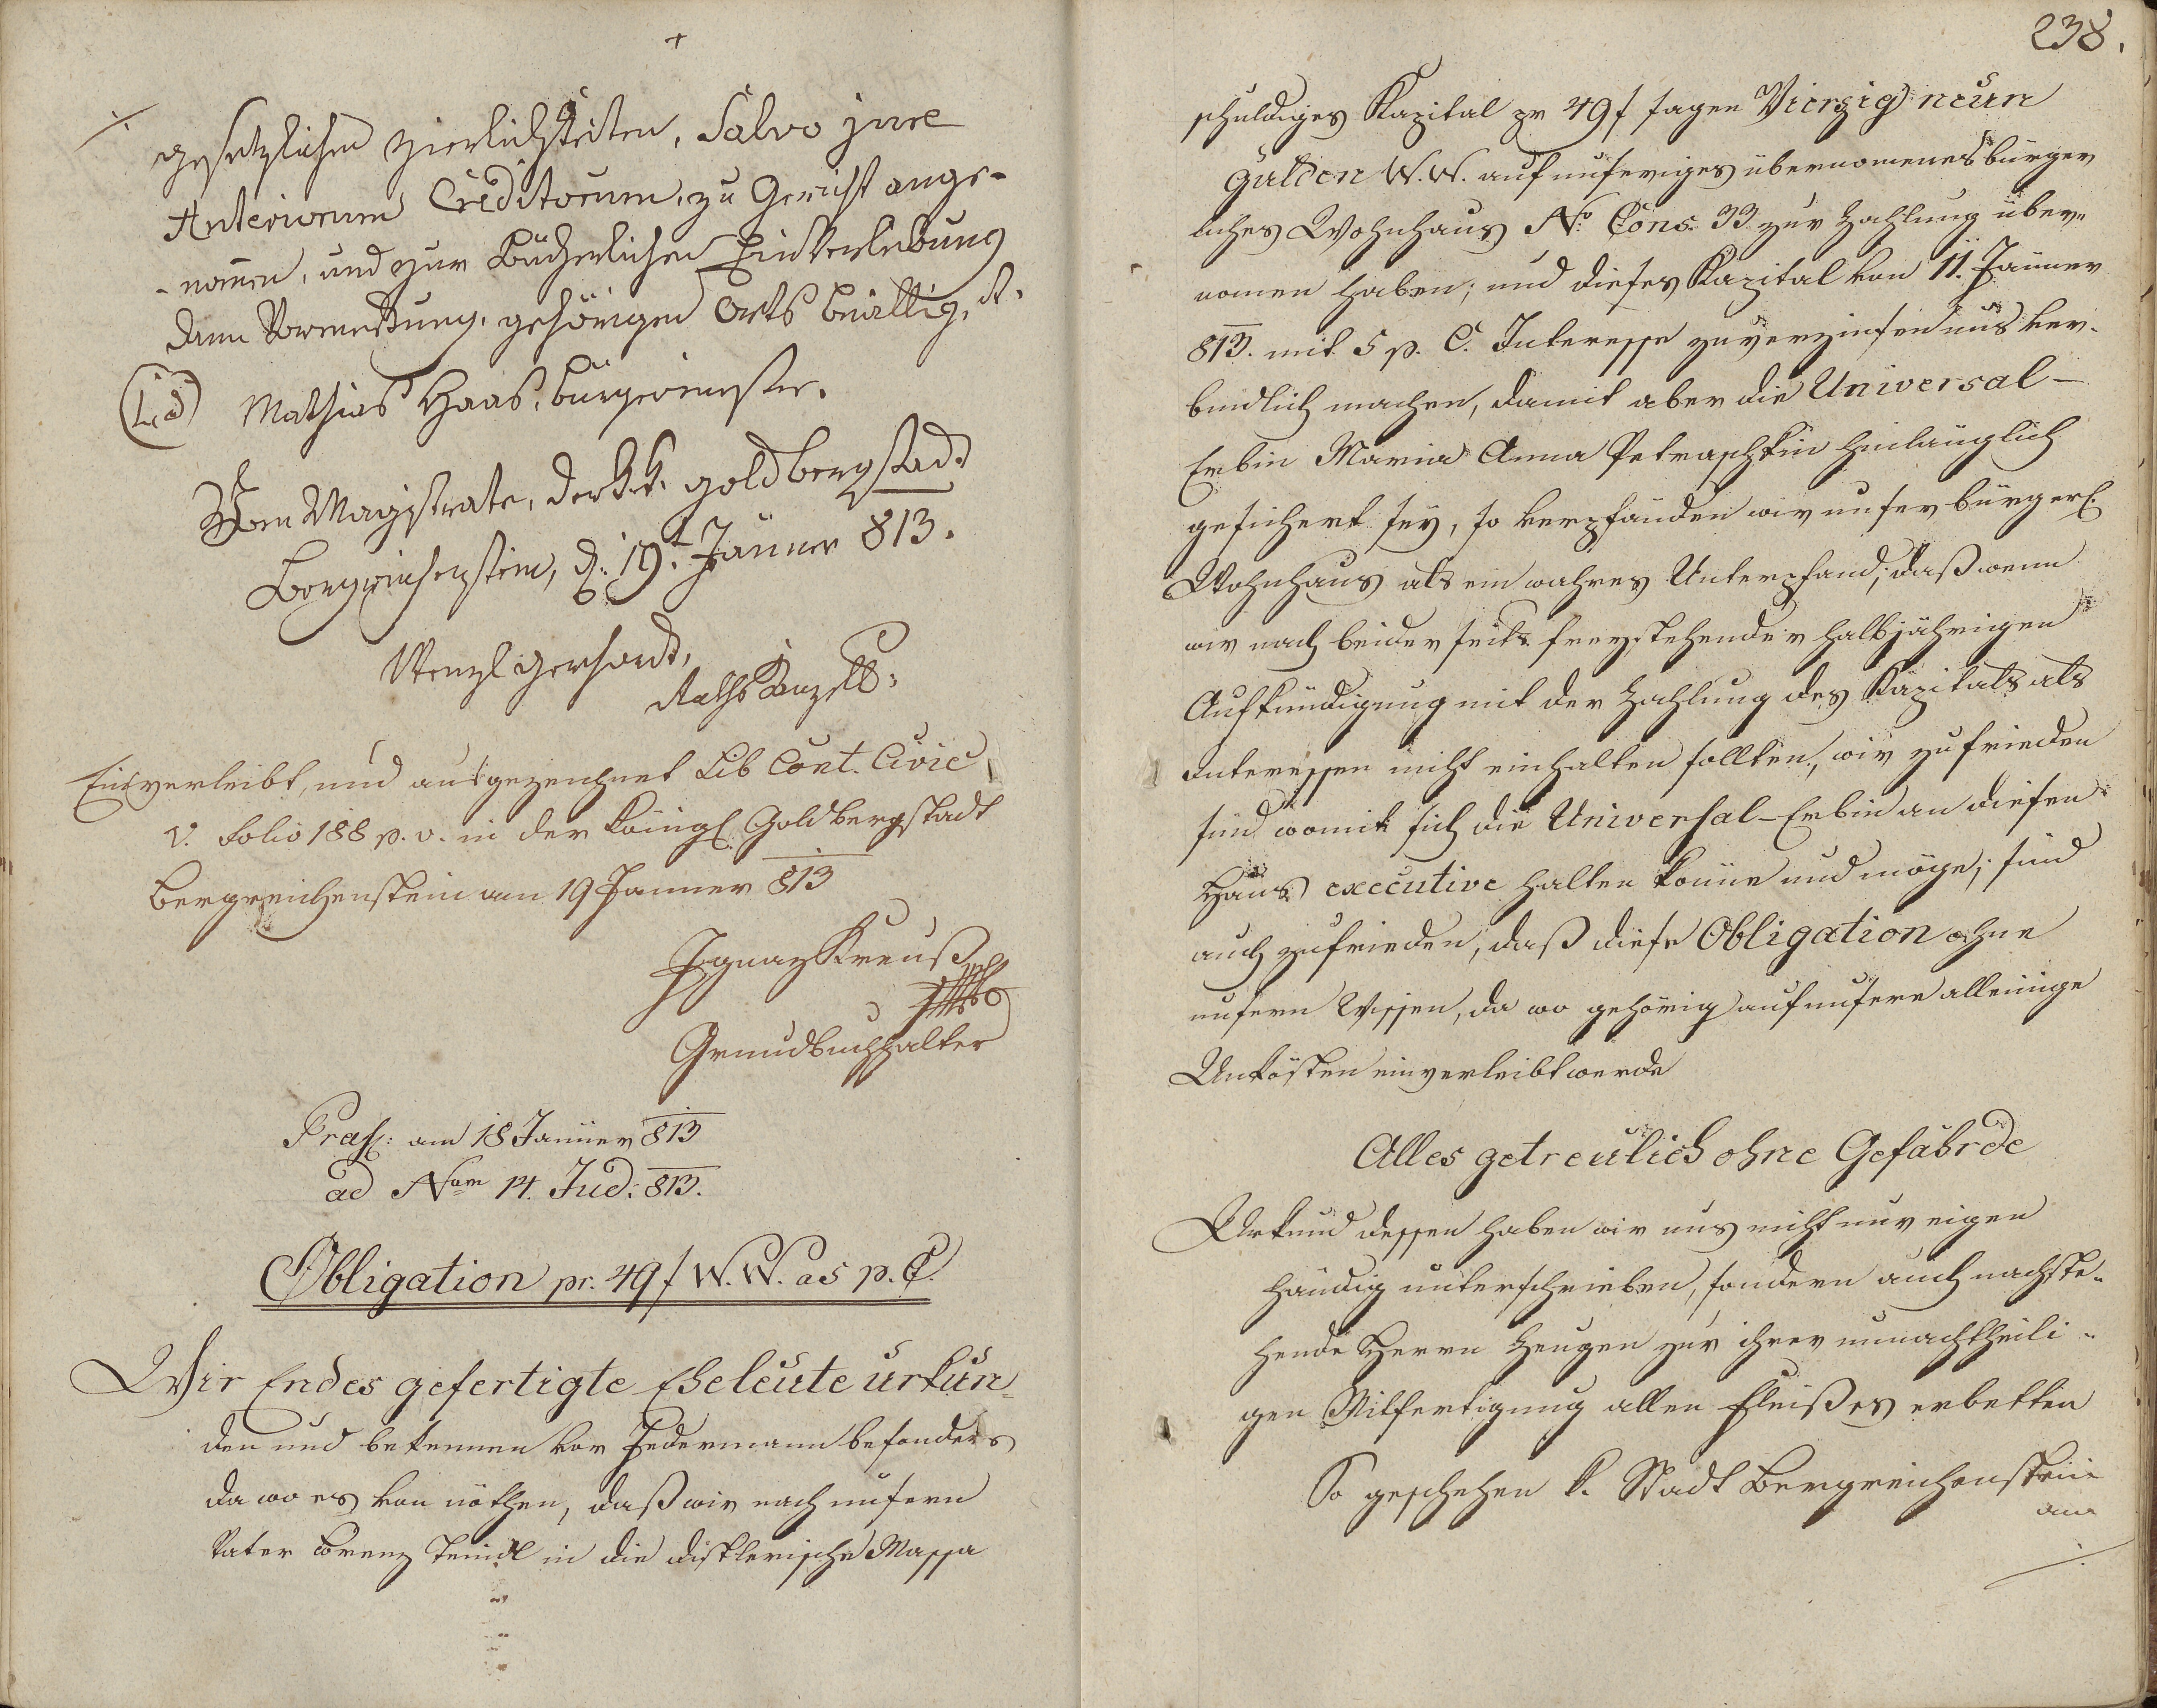 gesetzlichen Zierlichkeiten, Salvo jure
Anteriorum Creditorum, zu Gericht ange-
-nom̄en, und zur Bücherlichen Einverleibung
dann Vormerkung, gehörigen Orts bewilligt.
(L.S) Mathias Haas, bürgermeister.
Vom Magistrate, der k. k. goldbergstad
Bergreichenstein, d. 19t. Jänner 813.
Wenzl Gerhardt,
Raths
Einverleibt, und aufgezeichnet Lib Cont. Civic
V. Folio 188 p. v. in der königl. Goldbergstadt
Bergreichenstein am 19 Janner 813
Ignaz Kreuß
Grundbuchhalter
Pras: am 18 Janner 813
ad Num 14. Jud: 813.
Obligation pr. 49 f W. W. a 5 p. C.
Wir Endes gefertigte Eheleute urkun-
den und bekennen vor Jedermann besonders
da wo es von nöthen, daß wir nach unsern
Vater Lorenz in die Massa
238.
schuldiges Kapital pr 49 f sagen Vierzig neun
Gulden W. W. auf unseriges übernomenes bürger
liches Wohnhaus No. Cons. 33 zur Zahlung über-
nomen haben; und dieses Kapital von 11. Jänner
813. mit 5 p. C. Interesse zu verzinsen uns ver-
bindlich machen, damit aber die Universal-
Erbin Maria Anna Petraschkin hinlänglich
gesichert sey, so verpfänden wir unser bürgerl:
Wohnhaus als ein wahres Unterpfand; daß wenn
wir nach beiderseits freystehender halbjährigen
Aufkündigung mit der Zahlung des Kapitals als
Interessen nicht einhalten sollten, wir zufrieden
sind womit sich die Universal-Erbin an diesen
Haus executive halten könne und möge; sind
auch zufrieden, daß diese Obligation ohne
unsern Wissen, da wo gehörig auf unsere alleinige
Unkösten einverleibt werde
Alles getreulich ohne Gefährde
Urkund dessen haben wir uns nicht nur eigen
händig unterschrieben, sondern auch nachste-
hende Herrn Zeugen zur ihrer unnachtheili-
gen Mitfertigung allen Fleißes erbetten
So geschehen k. Stadt Bergreichenstein
am